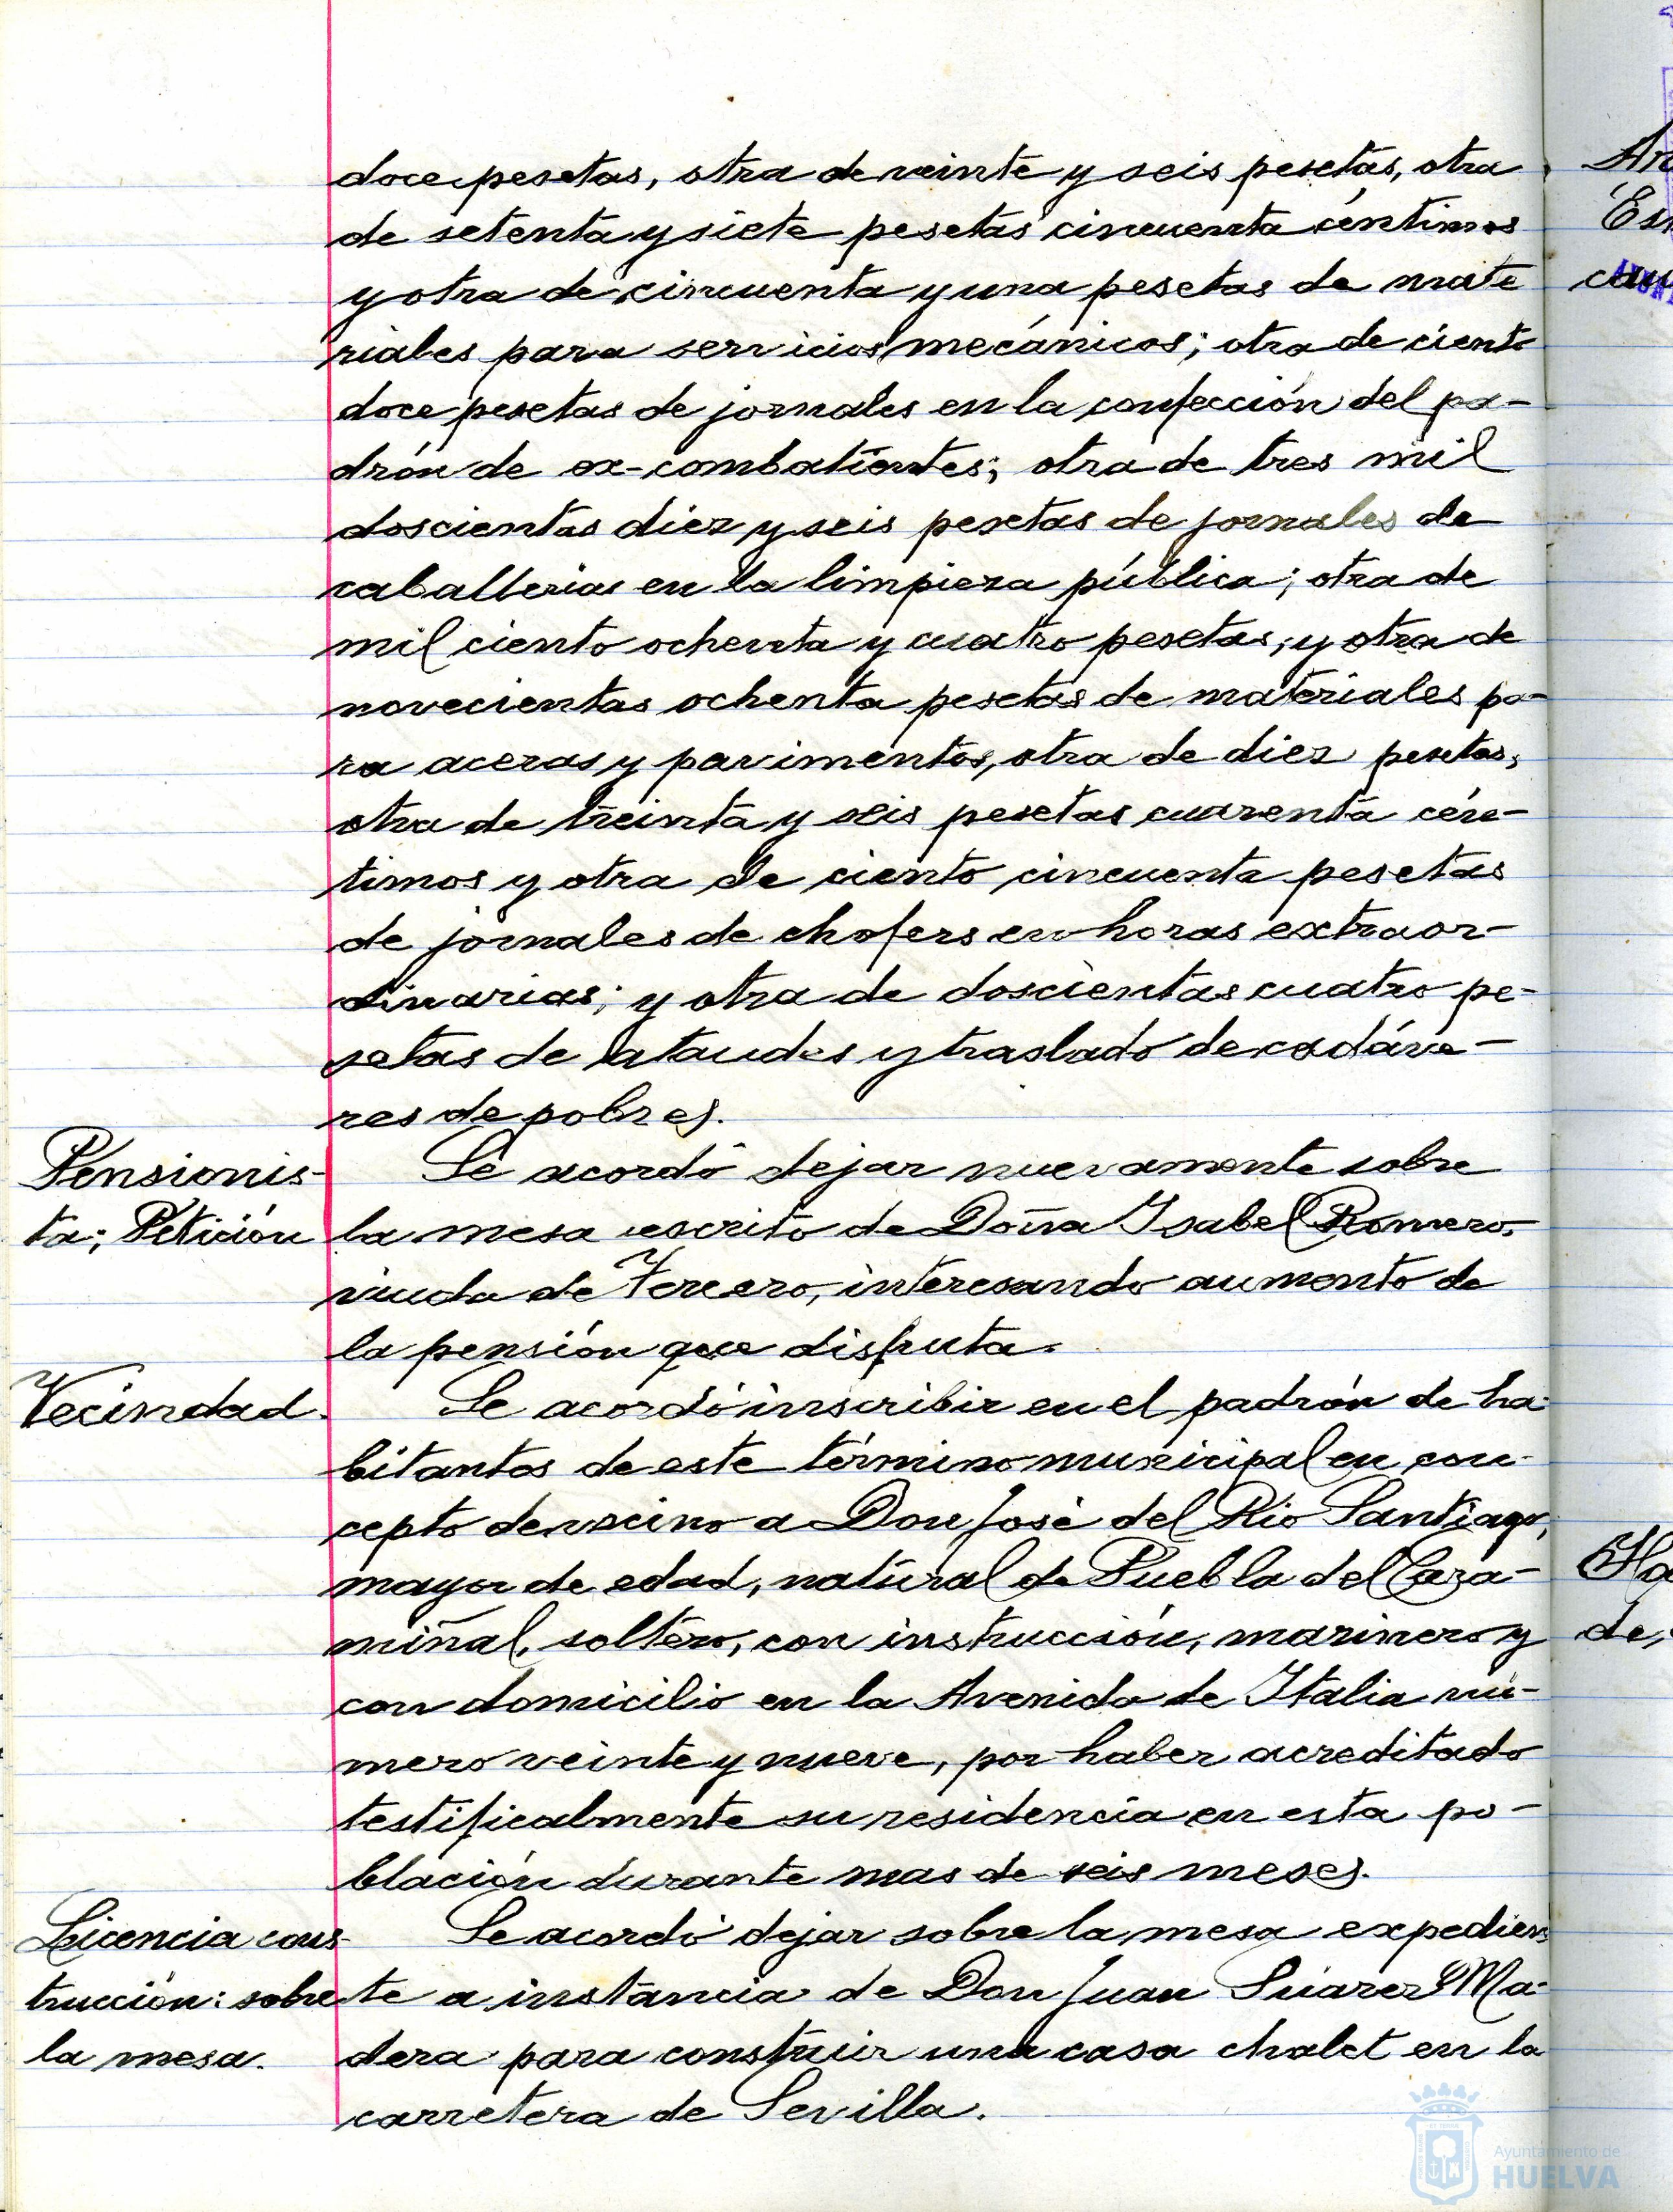 doce pesetas, otra de veinte y seis pesetas, otra
de setenta y siete pesetas cincuenta céntimos
y otra de cincuenta y una pesetas de mate
riales para servicios mecánicos; otra de ciento
doce pesetas de jornales en la confección del pa-
drón de ex-combatientes; otra de tres mil
doscientas diez y seis pesetas de jornales de
caballerias en la limpieza pública; otra de
mil ciento ochenta y cuatro pesetas; y otra de
novecientas ochenta pesetas de materiales pa-
ra aceras y pavimentos, otra de diez pesetas,
otra de treinta y seis pesetas cuarenta cén-
timos y otra de ciento cincuenta pesetas
de jornales de chofers en horas extraor-
dinarias; y otra de doscientas cuatro pe-
setas de ataudes y traslado de cadáve-
res de pobres.
Pensionis-
ta; Petición
Se acordó dejar nuevamente sobre
la mesa escrito de Doña Isabel Romero,
viuda de Tercero, interesando aumento de
la pensión que disfruta.
Vecindad.
Se acordó inscribir en el padrón de ha-
bitantes de este término municipal en con-
cepto de vecino a Don José del Rio Santiago,
mayor de edad, natural de Puebla del Cara-
miñal, soltero, con instrucción, marinero y
con domicilio en la Avenida de Italia nú-
mero veinte y nueve, por haber acreditado
testificalmente su residencia en esta po-
blación durante mas de seis meses.
Licencia cons-
trucción: sobre
la mesa.
Se acordó dejar sobre la mesa expedien
te a instancia de Don Juan Suarez Ma-
dera para construir una casa chalet en la
carretera de Sevilla.
Ayuntamiento de
HUELVA